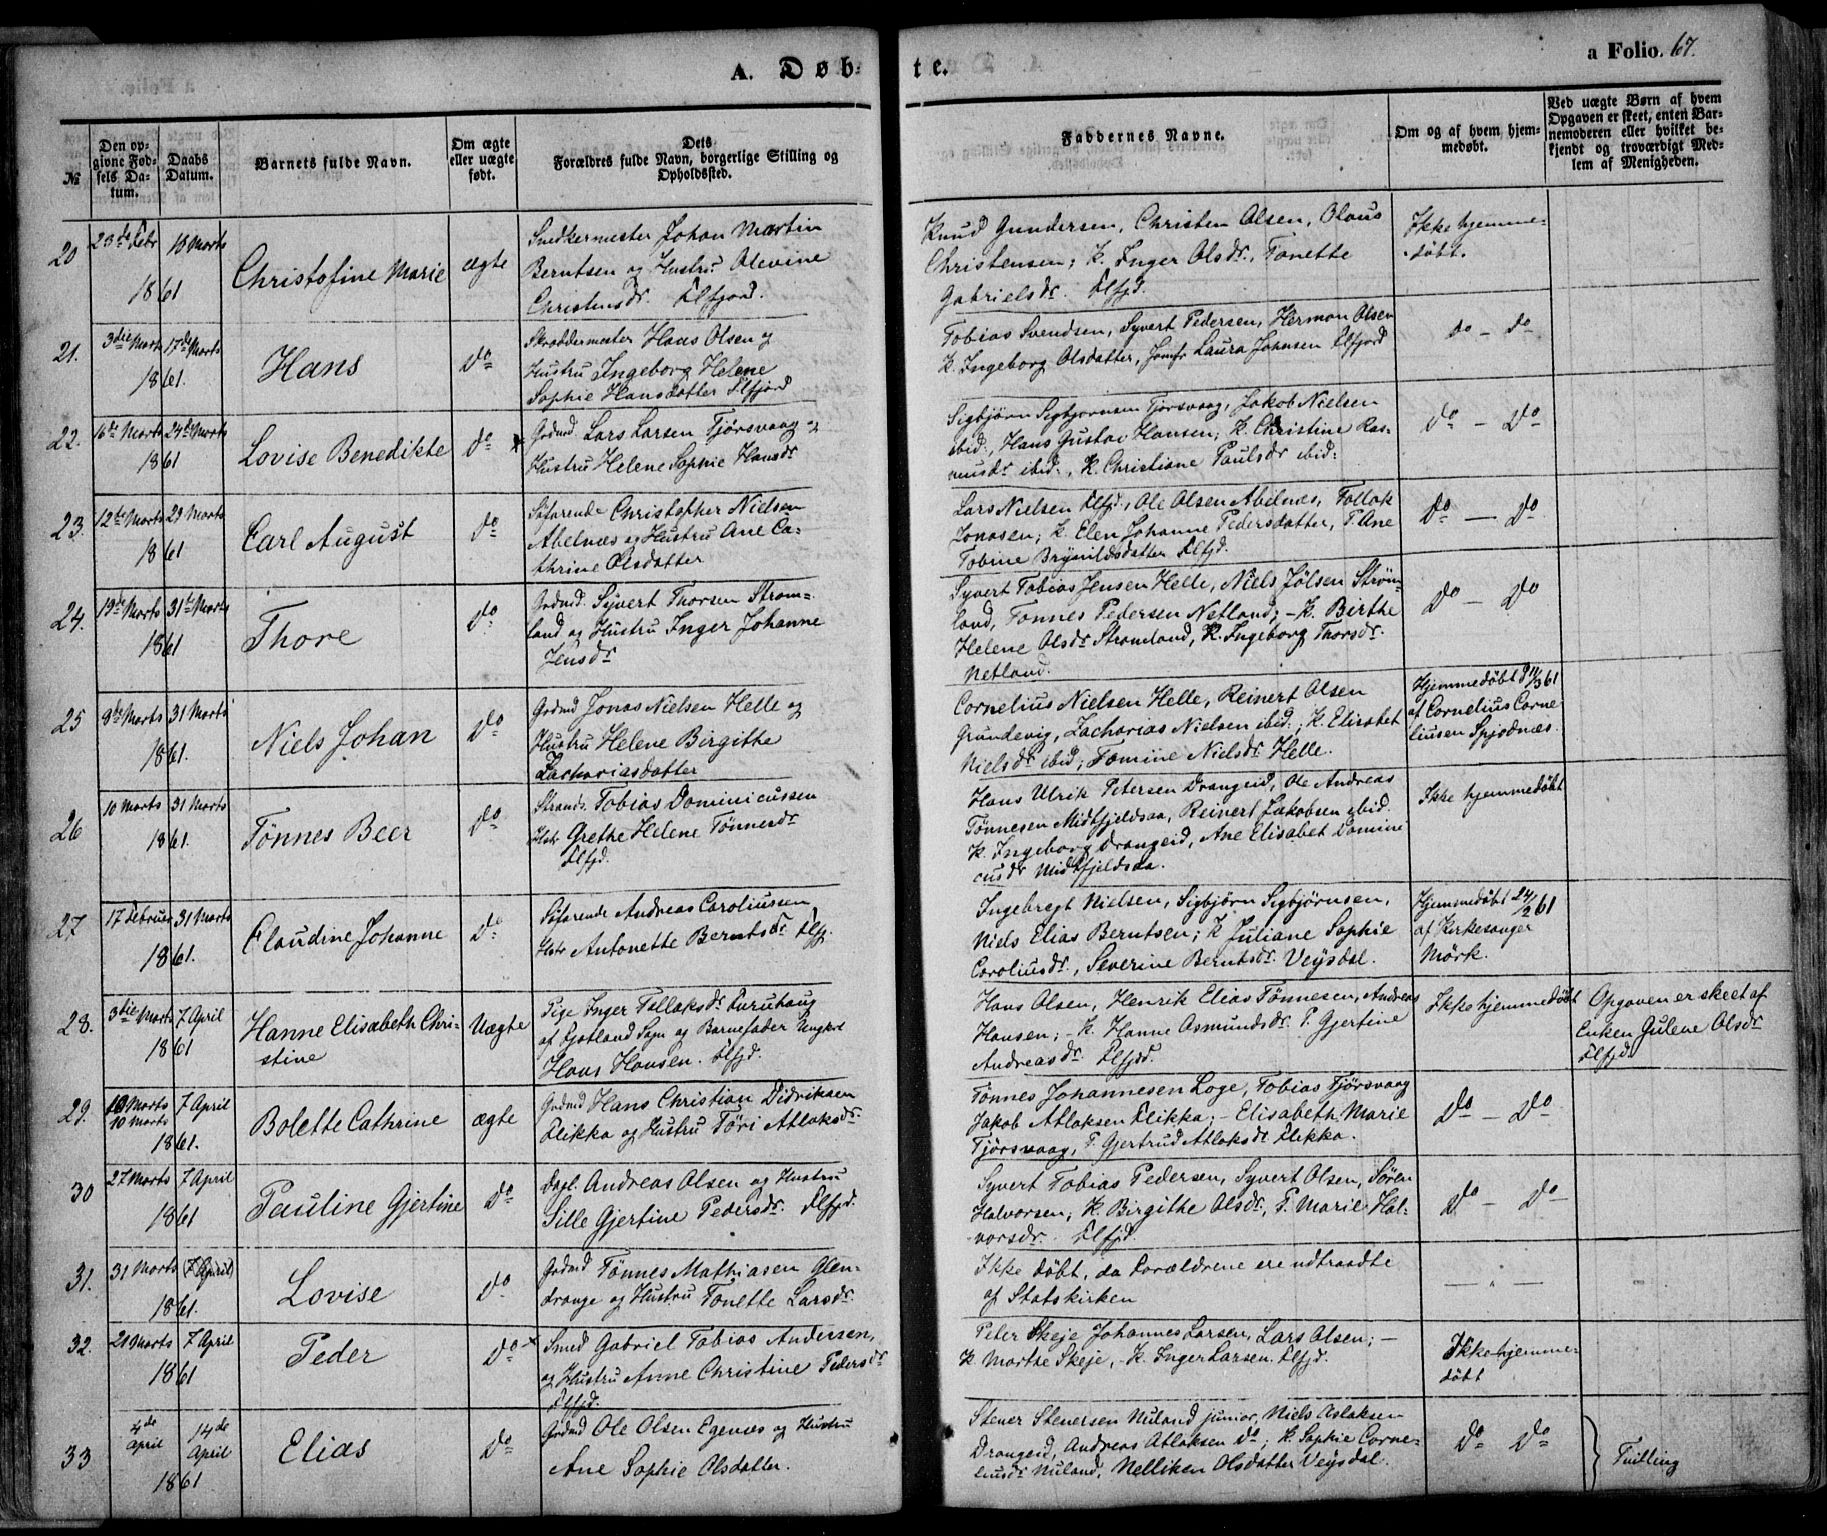 A. Døbte.
a Folio. 67.
№
Den opgivne Fødsels Datum.
Daabs Datum.
Barnets fulde Navn.
Om ægte eller uægte født.
Dets Forældres fulde Navn, borgerlige Stilling og Opholdssted.
Faddernes Navne.
Om og af hvem hjemmedøbt.
Ved uægte Børn af hvem Opgaven er skeet, enten Barnemoderen eller hvilket bekjendt og troværdigt Medlem af Menigheden.
20
23de Febr
1861
Christofine Marie
ægte
Snedkermester Johan Martin
Berntsen og Hustru Olevine
Christensdr. Flfjord.
Knud Gundersen, Christen Olsen, Olaus
Christensen; K. Inger Olsdr., Tonette
Gabrielsdr. Flfjd.
Ikke hjemme-
døbt.
21.
3die Marts 17de Marts
1861.
Hans
do
Skræddermester Hans Olsen og
Hustru Ingeborg Helene
Sophie Hansdatter Flfjord
Tobias Svendsen, Syvert Pedersen, Herman Olsen
K. Ingeborg Olsdatter, Jomfr Laura Johnsen Flfjord
do - do
22.
16de Marts 24de Marts
1861
Lovise Benedikte
do
Grdmd Lars Larsen Tjørsvaag og
Hustru Helene Sophie Hansdr
Sigbjørn Sigbjørnsen Tjørsvaag, Jakob Nielsen
ibid., Hans Gustav Hansen; K. Christine Ras-
musdr ibid., K. Christiane Paulsdr ibid:
do - Do
23.
12te Marts 29 Marts
1861
Carl August
do
Søfarende Christopher Nielsen
Abelnæs og Hustru Ane Ca-
thrine Olsdatter
Lars Nielsen Flfjd., Ole Olsen Abelnæs, Tollak
Jonasen; K. Elen Johanne Pedersdatter, P. Ane
Tobine Brynildsdatter Flfjd.
Do - Do
24.
19de Marts 31te Marts
1861
Thore
do
Grdmd. Syvert Thorsen Strøm-
land og Hustru Inger Johanne
Jensdr
Syvert Tobias Jensen Helle, Niels Jølsen Strøm-
land, Tønnes Pedersen Netland; - K. Birthe
Helene Olsdr Strømland, K. Ingeborg Thorsdr.
Netland.
Do - Do
25
8de Marts 31 Marts
1861.
Niels Johan
Do
Grdmd Jonas Nielsen Helle og
Hustru Helene Birgithe
Zachariasdatter
Cornelius Nielsen Helle, Reinert Olsen
Grundevig, Zacharias Nielsen ibid.; K. Elisabet
Nielsdr ibid; Tomine Nielsdr Helle.
af Cornelius Corne
liusen Spjodnæs.
26
10 Marts 31 Marts
1861.
Tønnes Beer
do
Strands. Tobias Dominicussen
Hstr Grethe Helene Tønnesdr
Flfjd.
Hans Ulrik Petersen Drangeid, Ole Andreas
Tønnesen Midtfjeldsaa, Reinert Jakobsen ibid.
K. Ingeborg Drangeid, Ane Elisabet Domini
cusdr Midtfjeldsaa.
Ikke hjemmedøbt
27
17 Februar 31 Marts
1861.
Claudine Johanne
Do
Søfarende Andreas Caroliussen
Hstr Antonette Berntsdr. Flfj.
Ingebregt Nielsen, Sigbjørn Sigbjørnsen,
Niels Elias Berntsen; K. Juliane Sophie
Caroliusdr., Severine Berntsdr. Veisdal.
Hjemmedøbt 24/2 61
af Kirkesanger
Mörk.
28.
3die Marts 7 April
1861
Hanne Elisabeth Chri-
stine
Uægte
Pige Inger Tellaksdr Furuhaug
af Gjotland Sogn og Barnefader Ungkarl
Hans Hansen. Flfjd.
Hans Olsen, Henrik Elias Tønnesen, Andreas
Hansen; - K. Hanne Asmundsdr. P. Gjertine
Andreasdr. Flfjd.
Ikke hjemmedøbt
Opgaven er skeet af
Enken Gulene Olsdr
Flfjd.
29.
10 Marts 7 April
10 Marts
1861.
Bolette Cathrine
ægte
Grdmd Hans Christian Didriksen
Flikka og Hustru Tøri Atlaksdr.
Tønnes Johannesen Loge, Tobias Tjørsvaag
Jakob Atlaksen Flikka; - Elisabeth Marie
Tjørsvaag, P. Gjertrud Atlaksdr Flikka.
Do - Do
30
27 Marts 7 April
1861
Pauline Gjertine
Do
Dagl. Andreas Olsen og Hustru
Sille Gjertine Pedersdr. Flfjd.
Syvert Tobias Pedersen, Syvert Olsen, Søren
Halvorsen; K. Birgithe Olsdr., P. Marie Hal-
vorsdr. Flfjd.
Do - Do
31.
31 Marts (7 April)
1861.
Lovise
Do
Grdmd Tønnes Mathiasen Glen-
drange og Hustru Tonette Larsdr.
Ikke døbt, da Forældrene ere udtraadte
af Statskirken
32.
21 Marts 7 April
1861
Peder
Do
Smed Gabriel Tobias Andersen,
og Hustru Anne Christine Pedersdr
Flfjd.
Peter Skeje Johannes Larsen, Lars Olsen; -
K. Marthe Skeje, K. Inger Larsen. Flfjd.
Ikke hjemme-
døbt
33
4de April 14de April
1861
Elias
Do
Grdmd Ole Olsen Egenæs og Hustru
Ane Sophie Olsdatter.
Stener Stenersen Nuland junior, Niels Aslaksen
Drangeid, Andreas Atlaksen Do; K. Sophie Corne-
liusdr Nuland. Nelliken Olsdatter Veysdal.
Do Do
Tvilling